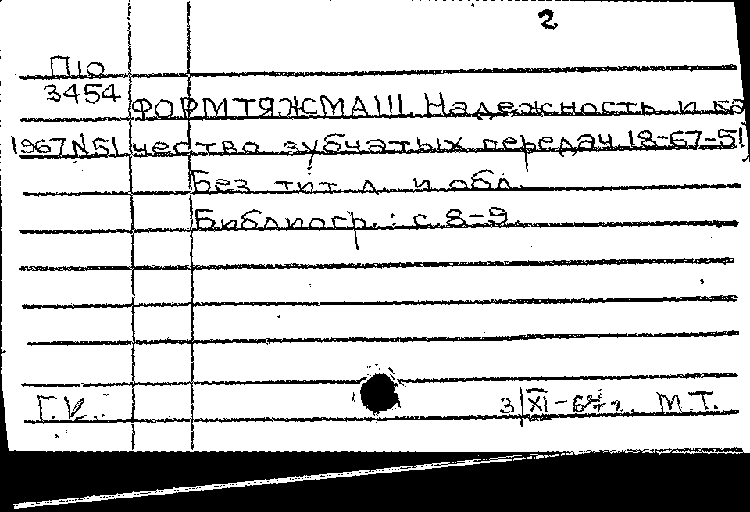 2
П10
3454 ФОРМТЯЖМАШ. Надежность и ка
1967 N51 чество зубчатых передач. 18-67-51)
Без тит. л. и обл.
Библиогр.: с. 8-9.
Г.К. 3/XI-67г. М.Т.